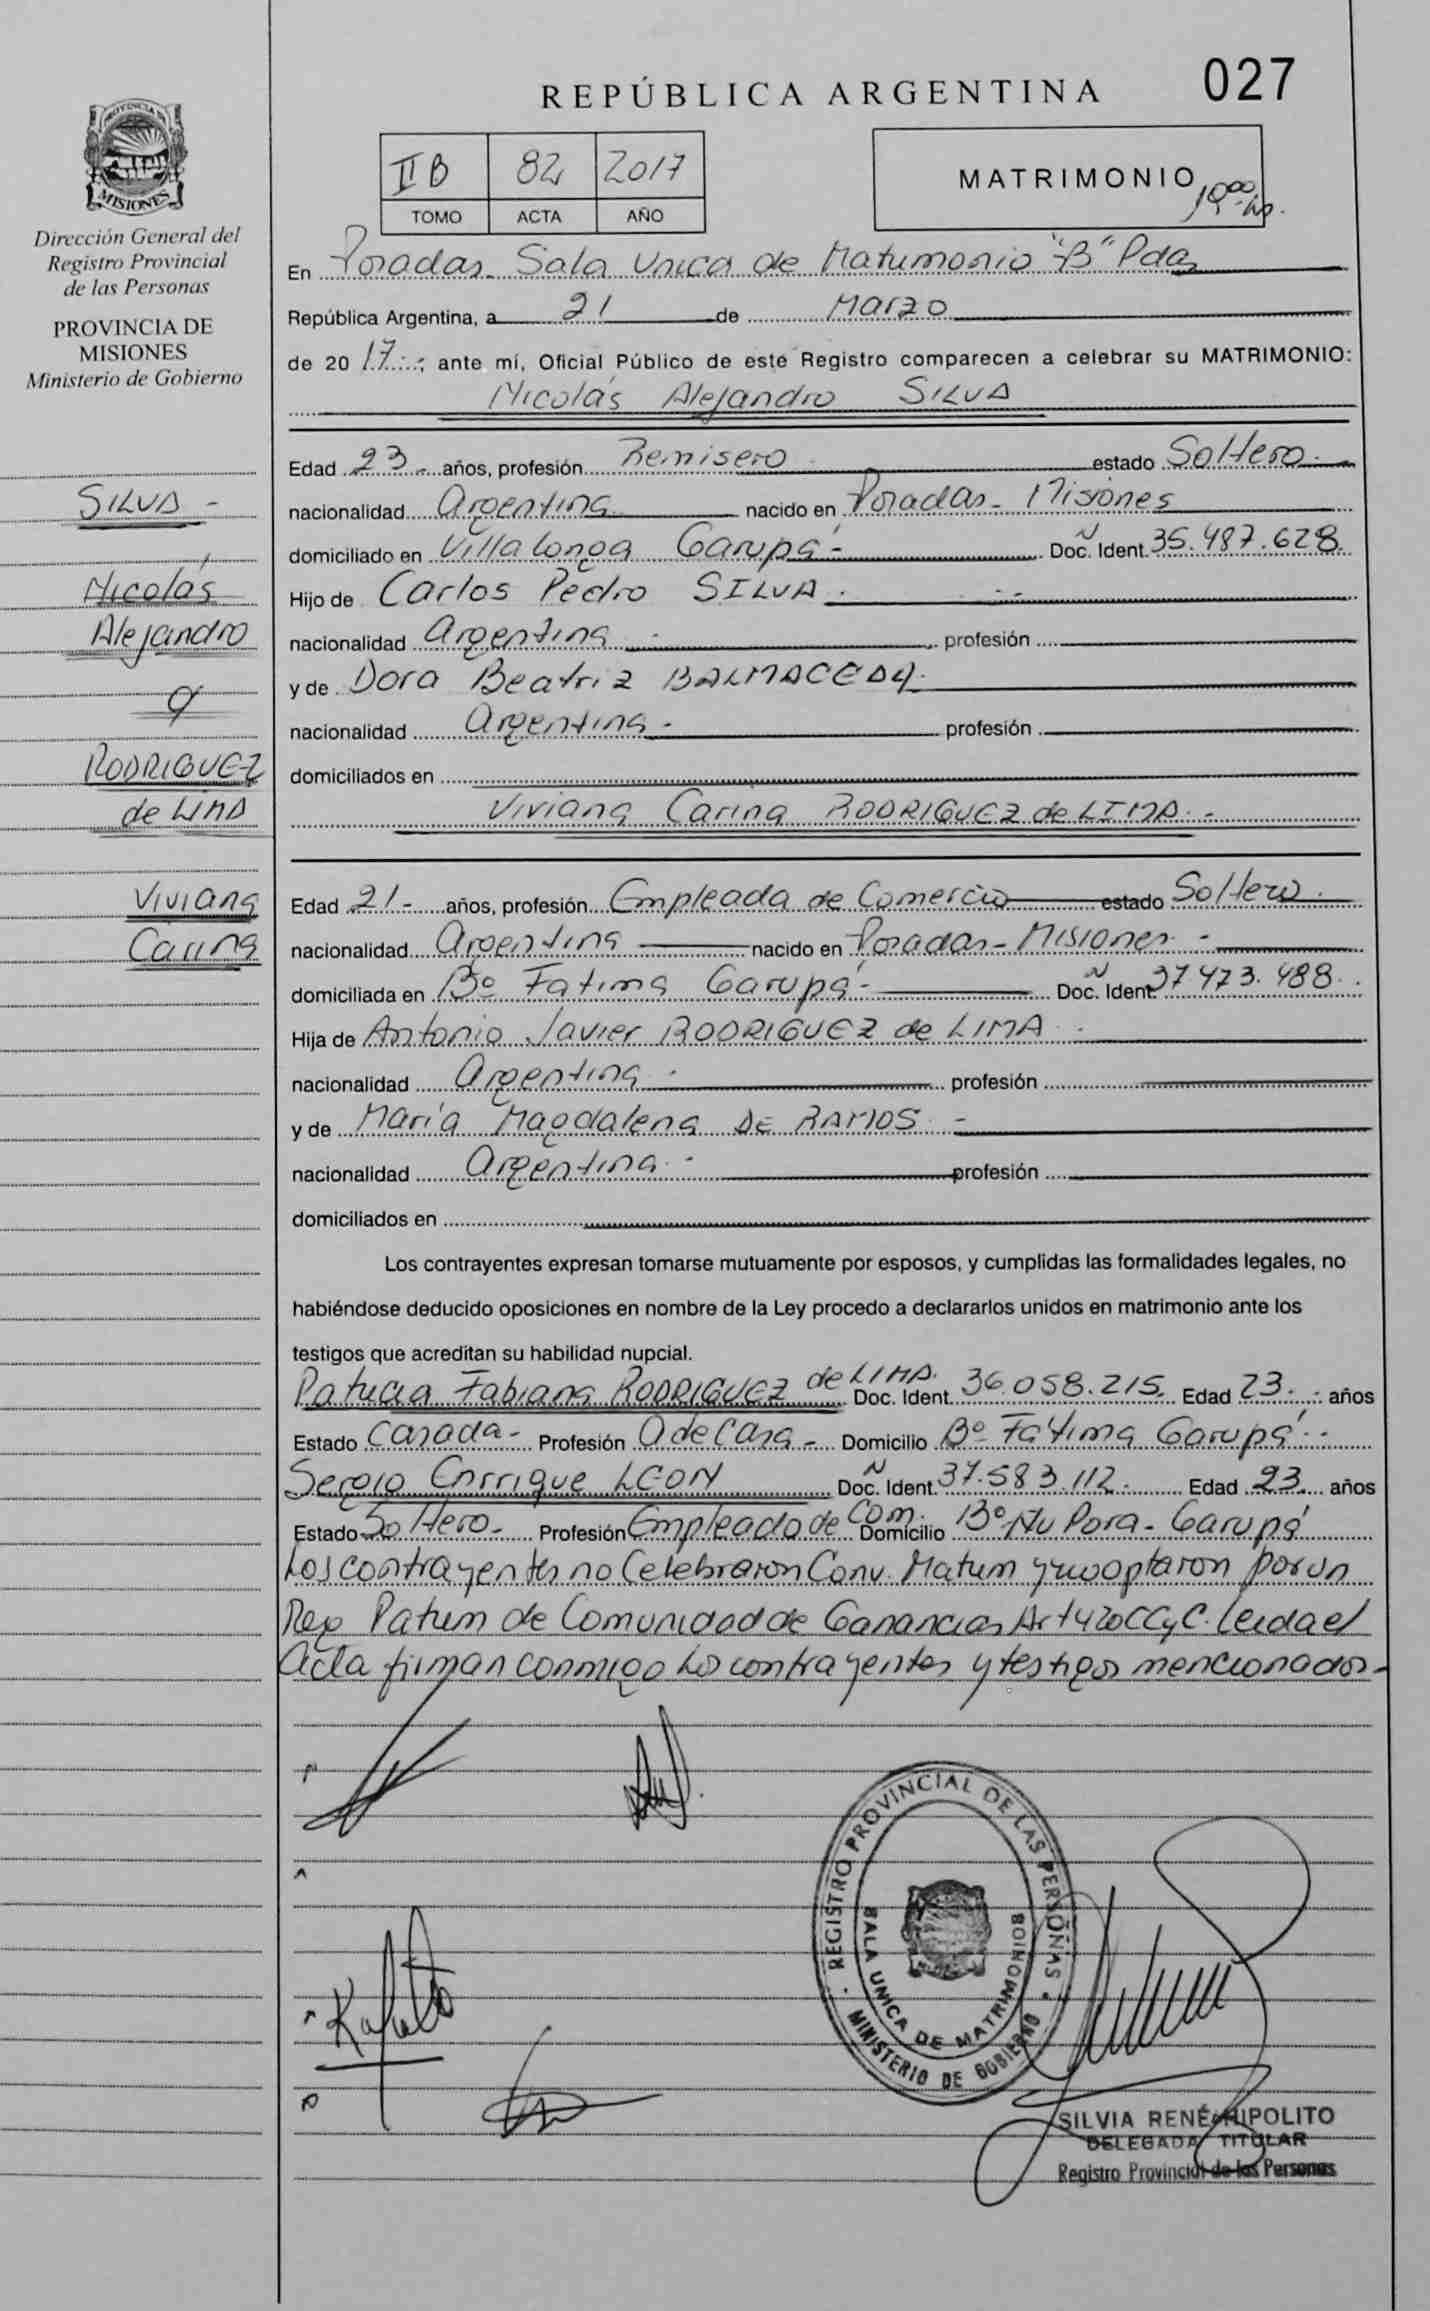 027
REPÚBLICA ARGENTINA
PROVINCIA
MISIONES
Dirección General del
Registro Provincial
de las Personas
PROVINCIA DE
MISIONES
Ministerio de Gobierno
II B 82 2017
TOMO ACTA AÑO
MATRIMONIO
En Posadas Sala Unica de Matrimonio "B" Pdas
República Argentina, a 21 de Marzo
de 2017.-; ante mí, Oficial Público de este Registro comparecen a celebrar su MATRIMONIO:
Nicolás Alejandro SILVA
Edad 23.- años, profesión Remisero estado Soltero.-
nacionalidad Argentina nacido en Posadas - Misiones
domiciliado en Villalonga Garupá - Doc. Ident. Nº 35.487.628.
Hijo de Carlos Pedro SILVA.
nacionalidad Argentina - profesión
y de Dora Beatriz BALMACEDA.
nacionalidad Argentina - profesión
domiciliados en
Viviana Carina RODRIGUEZ de LIMA. -
Edad 21- años, profesión Empleada de Comercio estado Soltera.
nacionalidad Argentina nacido en Posadas - Misiones -
domiciliada en Bº Fatima Garupá - Doc. Ident. Nº 37473.488.
Hija de Antonio Javier RODRIGUEZ de LIMA.
nacionalidad Argentina - profesión
y de María Magdalena DE RAMOS. -
nacionalidad Argentina - profesión
domiciliados en
Los contrayentes expresan tomarse mutuamente por esposos, y cumplidas las formalidades legales, no
habiéndose deducido oposiciones en nombre de la Ley procedo a declararlos unidos en matrimonio ante los
testigos que acreditan su habilidad nupcial.
Patricia Fabiana RODRIGUEZ de LIMA. Doc. Ident. 36.058.215. Edad 23. - años
Estado Casada - Profesión A de Casa - Domicilio Bº Fátima Garupá -
Sergio Enrrique LEON Doc. Ident. Nº 37.583.112. Edad 23. años
Estado Soltero - Profesión Empleado de Com. Domicilio Bº Ñu Pora - Garupá
Los contrayentes no Celebraron Conv. Matrim y optaron por un
Reg Patrim de Comunidad de Ganancias Art 420 CCyC. Leida el
Acta firman conmigo los contrayentes y testigos mencionados -
SILVA -
Nicolás
Alejandro
c/
RODRIGUEZ
de LIMA
Viviana
Carina
REGISTRO PROVINCIAL DE LAS PERSONAS
SALA UNICA DE MATRIMONIOS
MINISTERIO DE GOBIERNO
SILVIA RENÉ HIPOLITO
DELEGADA TITULAR
Registro Provincial de las Personas